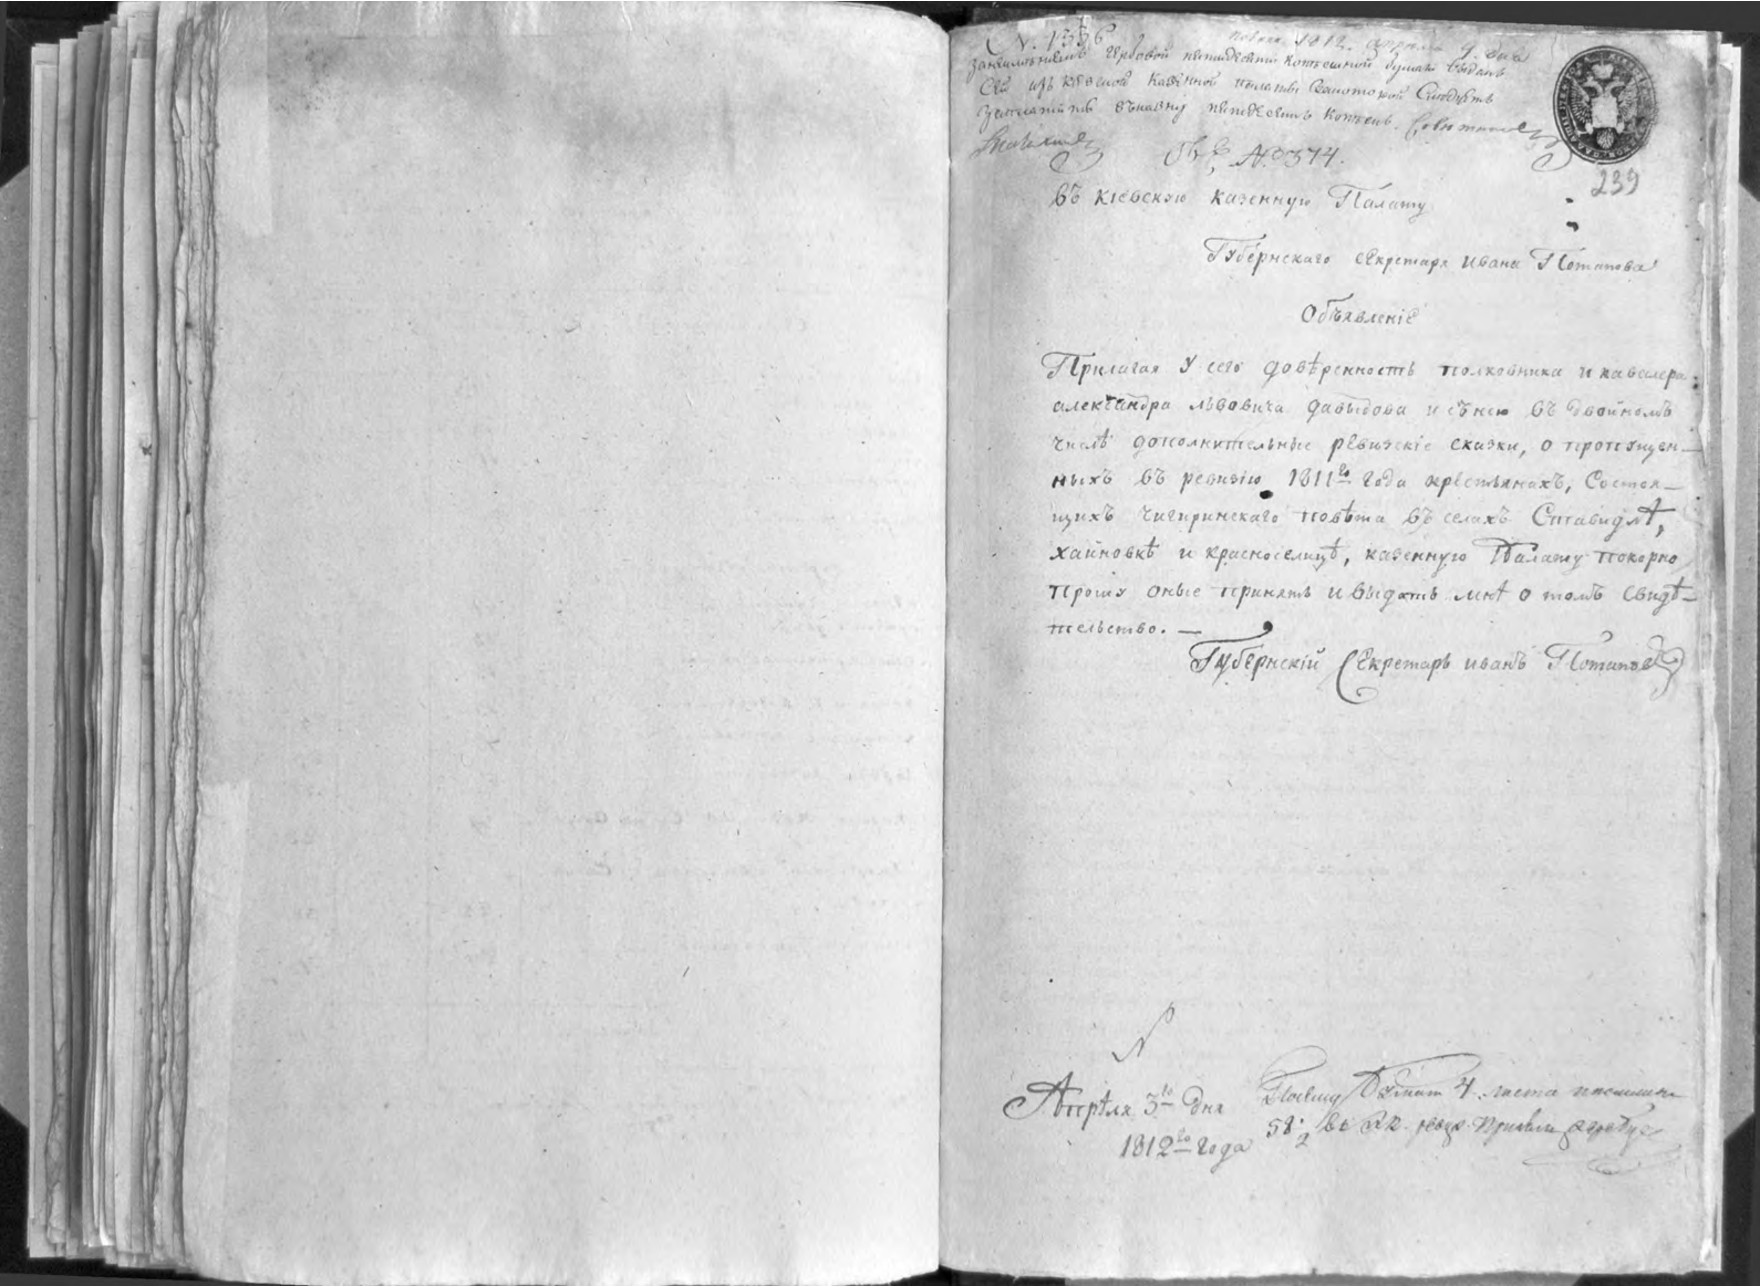 N. 1336 1812. апреля 9. дня
гербовой копеешной бумаги выданъ
Сей изъ казенной палаты
копеекъ.
№ 374.
239
въ кіевскую казенную Палату
Губернскаго секретаря ивана Потапова
Объявленіе
Прилагая у сего довѣренность полковника и кавалера
александра львовича давыдова и снею въ двойномъ
числѣ дополнительные ревизскіе сказки, о пропущен-
ныхъ въ ревизію 1811го года крестьянахъ, Состоя-
щихъ чигиринскаго повѣта въ селахъ Ставидлѣ,
хайновкѣ и красноселицѣ, казенную Палату покорно
прошу оные принять и выдать мнѣ о томъ свидѣ-
тельство. —
Губернскій Секретарь иванъ Потаповъ
Апрѣля 3го дня
1812го года
4. листа
58.